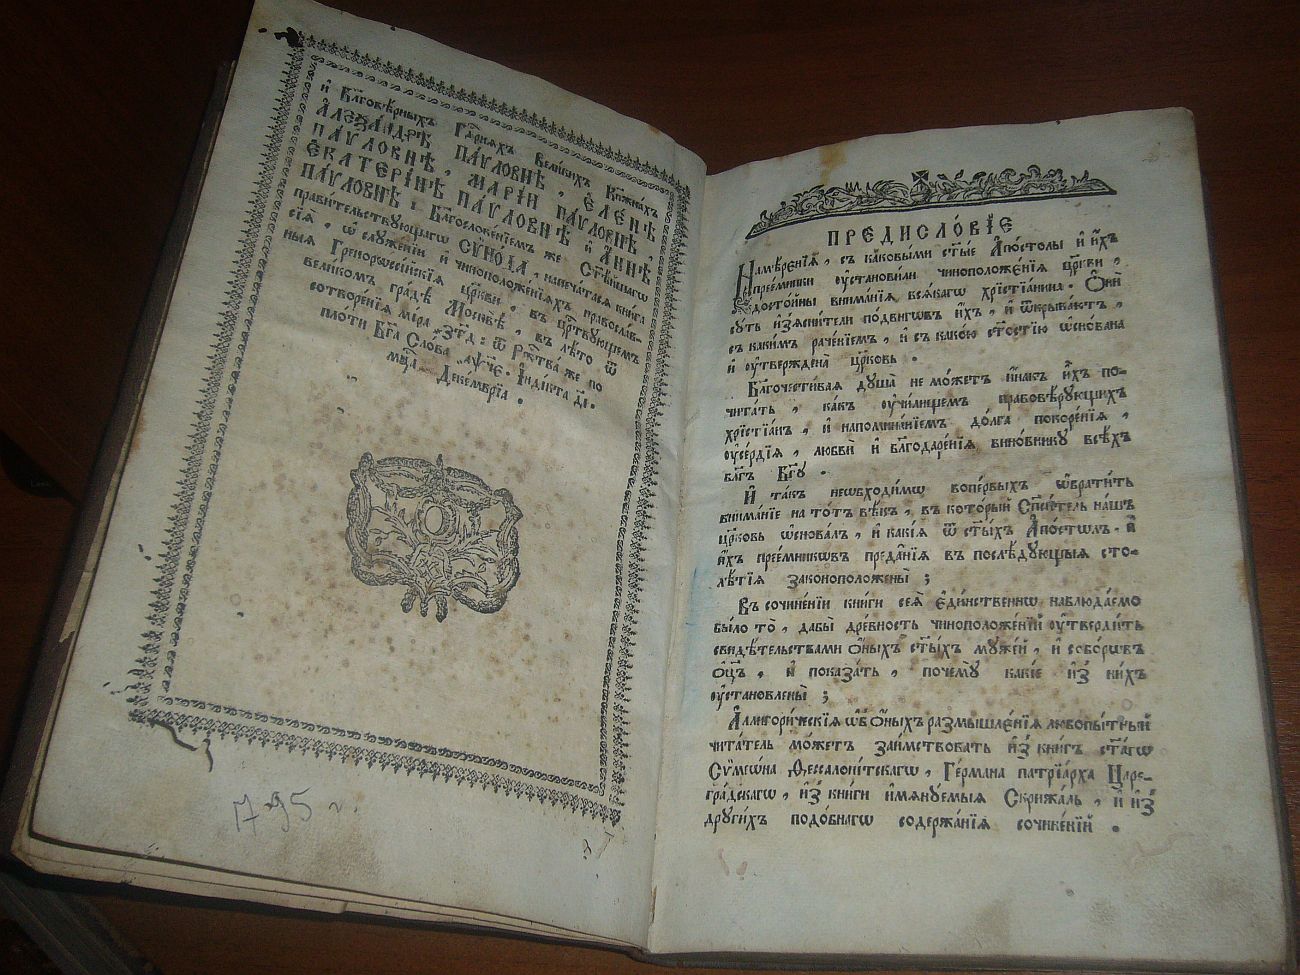 и҆ Бл҃говѣ́рныхъ Гдⷭ҇рняхъ Вели́кихъ Кнѧжна́хъ
А҆ЛЕѮА́НДРѢ ПА́ѴЛОВНѢ, Е҆ЛЕ́НѢ
ПА́ѴЛОВНѢ, МАРІ́И ПА́ѴЛОВНѢ,
Е҆КАТЕРІ́НѢ ПА́ѴЛОВНѢ И҆ А҆́ННѢ
ПА́ѴЛОВНѢ: Бл҃гослове́нїемъ же Ст҃ѣ́йшагѡ
прави́тельствующагѡ СѴНО́ДА, напеча́тасѧ кни́га
сїѧ̀, ѡ҆ слꙋже́нїи и҆ чиноположе́нїѧхъ правосла́в-
ныѧ Грекорѡссі́йскїѧ цр҃кви. въ цр҃твꙋющемъ
вели́комъ гра́дѣ Москвѣ̀, въ лѣ́то ѿ
сотворе́нїѧ мі́ра ҂зт҃д: ѿ Рж҇тва́ же по
пло́ти Бг҃а Сло́ва ҂аѱч҃е. І҆ндїкта д҃і.
мц҇а Деке́мврїа.
1795 г.
ПРЕДИСЛО́ВЇЕ
Намѣ́ренїѧ, съ каковы́ми ст҃ы́е А҆по́столы и҆ и҆́хъ
прее́мники ᲂу҆станови́ли чиноположе́нїѧ цр҃кви,
досто́йны внима́нїѧ всѧ́кагѡ хрїстїа́нина. Ѻ҆нѝ
сꙋ́ть и҆з̾ѧсни́тели по́двигѡвъ и҆́хъ, и҆ ѿкрыва́ютъ,
съ каки́мъ раче́нїемъ, и҆ съ како́ю ст҃остїю ѡ҆сно́вана
и҆ ᲂу҆твержденà цр҃ковь.
Бл҃гочести́вая дꙋша̀ не мо́жетъ и҆на́къ и҆́хъ по-
чита́ть, ка́къ ᲂу҆чи́лищемъ правовѣ́рꙋющихъ
хрїстїа́нъ, и҆ напомина́нїемъ до́лга покоре́нїѧ,
ᲂу҆се́рдїѧ, любвѝ и҆ бл҃годаре́нїѧ вино́вникꙋ всѣ́хъ
бл҃гъ Бг҃ꙋ.
И҆ та́къ неѡбходи́мѡ вопе́рвыхъ ѡ҆брати́ть
внима́нїе на то́тъ вѣ́къ, въ кото́рый Сп҃си́тель на́шъ
цр҃ковь ѡ҆снова́лъ, и҆ какі́ѧ ѿ ст҃ы́хъ А҆по́столъ и҆
и҆́хъ прее́мникѡвъ преда̑нїѧ въ послѣ́дꙋющыѧ сто-
лѣ́тїѧ законоположены̀;
Въ сочине́нїи кни́ги сеѧ̀ є҆ди́нственнѡ наблюда́емо
бы́ло то̀, дабы̀ дре́вность чиноположе́нїй ᲂу҆тверди́ть
свидѣ́тельствами ѻ҆́ныхъ ст҃ы́хъ мꙋже́й, и҆ собо́рѡвъ
ѻ҆ц҃ъ, и҆ показа́ть, почемꙋ̀ какі́е и҆з̾ ни́хъ
ᲂу҆становлены̀;
А҆ллигори́ческїѧ ѡ҆б̾ ѻ҆́ныхъ размышле́нїѧ любопы́тный
чита́тель мо́жетъ заи́мствовать и҆з̾ кни́гъ ст҃а́гѡ
Сѷмеѡ́на Ѳессалоні́тскагѡ, Ге́рмана патрїа́рха Царе-
гра́дскагѡ, и҆з̾ кни́ги и҆мянꙋ́емыѧ Скрижа́ль, и҆ и҆з̾
дрꙋги́хъ подо́бнагѡ содержа́нїѧ сочине́нїй.